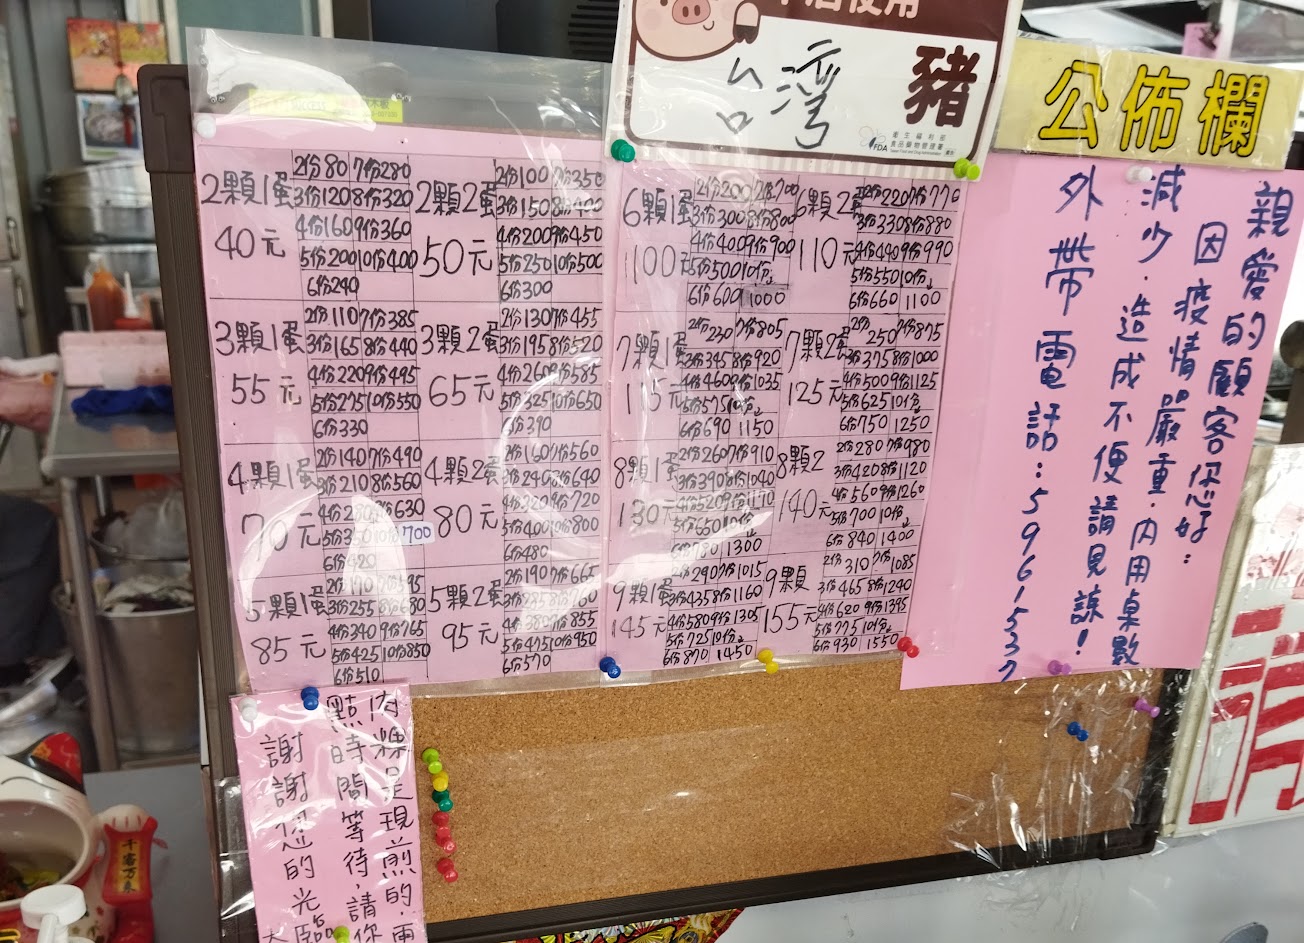 本店使用
台灣
豬
衛生福利部
食品藥物管理署
FDA
公佈欄
親愛的顧客您好:
因疫情嚴重,內用桌數
減少,造成不便請見諒!
外帶電話:5961537
2顆1蛋
40元
2份80 7份280
3份120 8份320
4份160 9份360
5份200 10份400
6份240
2顆2蛋
50元
2份100 7份350
3份150 8份400
4份200 9份450
5份250 10份500
6份300
3顆1蛋
55元
2份110 7份385
3份165 8份440
4份220 9份495
5份275 10份550
6份330
3顆2蛋
65元
2份130 7份455
3份195 8份520
4份260 9份585
5份325 10份650
6份390
4顆1蛋
70元
2份140 7份490
3份210 8份560
4份280 9份630
5份350 10份700
6份420
4顆2蛋
80元
2份160 7份560
3份240 8份640
4份320 9份720
5份400 10份800
6份480
5顆1蛋
85元
2份170 7份595
3份255 8份680
4份340 9份765
5份425 10份850
6份510
5顆2蛋
95元
2份190 7份665
3份285 8份760
4份380 9份855
5份475 10份950
6份570
6顆1蛋
100元
2份200 7份700
3份300 8份800
4份400 9份900
5份500 10份
6份600 1000
6顆2蛋
110元
2份220 7份770
3份330 8份880
4份440 9份990
5份550 10份
6份660 1100
7顆1蛋
115元
2份230 7份805
3份345 8份920
4份460 9份1035
5份575 10份
6份690 1150
7顆2蛋
125元
2份250 7份875
3份375 8份1000
4份500 9份1125
5份625 10份
6份750 1250
8顆1蛋
130元
2份260 7份910
3份390 8份1040
4份520 9份1170
5份650 10份
6份780 1300
8顆2
140元
2份280 7份980
3份420 8份1120
4份560 9份1260
5份700 10份
6份840 1400
9顆1蛋
145元
2份290 7份1015
3份435 8份1160
4份580 9份1305
5份725 10份
6份870 1450
9顆
155元
2份310 7份1085
3份465 8份1240
4份620 9份1395
5份775 10份
6份930 1550
肉粿是現煎的,需
點時間等待,請你
謝謝您的光臨
千客万来